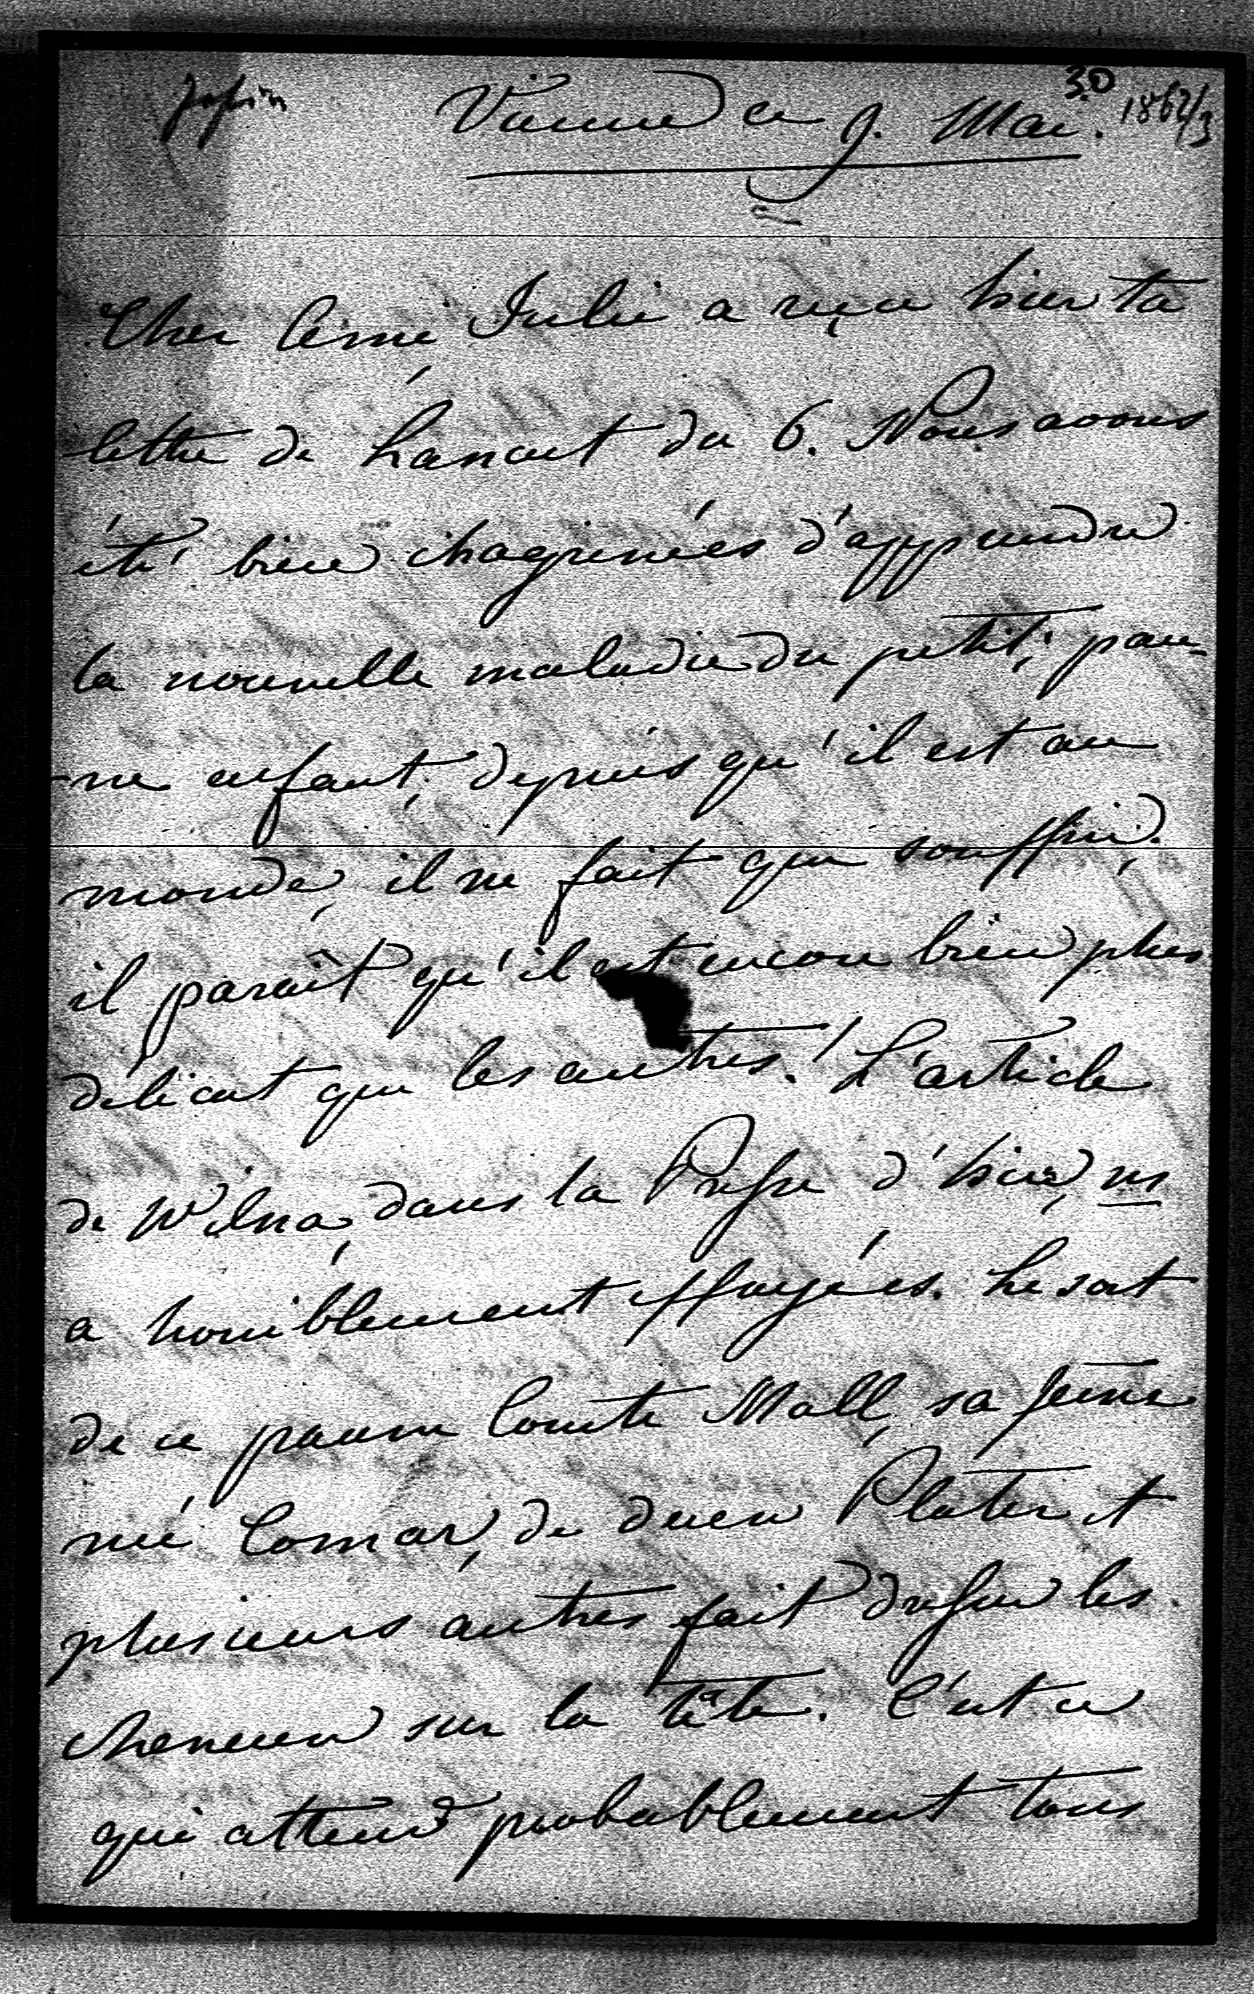 Vienne ce 9. Mai.
30
1862/3
Cher Ami Julie a reçu hier ta
lettre de Lancut du 6. Nous avons
été bien chagrinées d'apprendre
la nouvelle maladie du petit; pau-
vre enfant, depuis qu'il est au
monde, il ne fait que souffrir,
il paraît qu'il est encore bien plus
délicat que les autres! L'article
de Wilna, dans la Presse d'hier, ns
a horriblement effrayées. Le sort
de ce pauvre Comte Moll, sa femme
née Comar, de deux Plater et
plusieurs autres fait dresser les
cheveux sur la tête. C'est ce
qui attend probablement tous